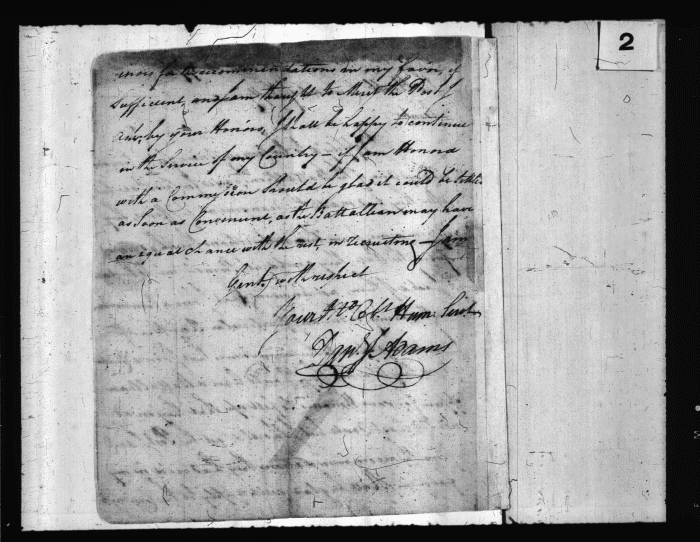 2
for the recommendations in my favor, if
Sufficient, and I am thought to Merit the Post
by your Honors, I shall be happy to continue
in the Service of my Country – if I am Honord
with a Commission should be glad it could be settled
as soon as Convenient, as the Battallian may have
an equal chance with the rest, in recruiting – I am
Gentn with respect
Your Obt Hum. Servt
Adams